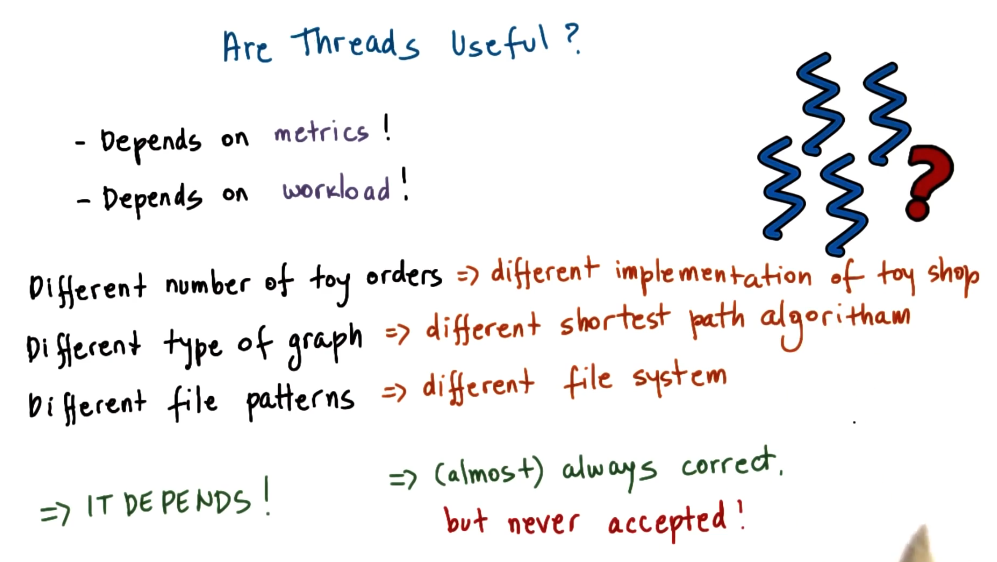 Are Threads Useful?
- Depends on metrics!
- Depends on workload!
Different number of toy orders => different implementation of toy shop
Different type of graph => different shortest path algoritham
Different file patterns => different file system
=> IT DEPENDS!
=> (almost) always correct,
but never accepted!
?